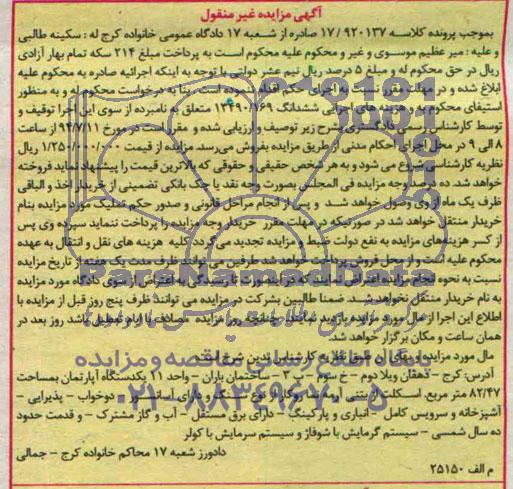 آگهی مزایده غیر منقول
بموجب پرونده کلاسه ۹۲۰۱۳۷ / ۱۷ صادره از شعبه ۱۷ دادگاه عمومی خانواده کرج له : سکینه طالبی
و علیه : میر عظیم موسوی و غیر و محکوم علیه محکوم است به پرداخت مبلغ ۲۱۴ سکه تمام بهار آزادی
ریال در حق محکوم له و مبلغ ۵ درصد ریال نیم عشر دولتی با توجه به اینکه اجرائیه صادره به محکوم علیه
ابلاغ شده و در مهلت مقرر نسبت به اجرای حکم اقدام ننموده است . بنا به درخواست محکوم له و به منظور
استیفای محکوم به و هزینه های اجرایی ششدانگ متعلق به نامبرده از سوی این اجرا توقیف و
توسط کارشناس رسمی دادگستری بشرح زیر توصیف و ارزیابی شده و مقرر است در مورخ ۹۴/۷/۱۱ از ساعت
۸ الی ۹ در محل اجرای احکام مدنی از طریق مزایده بفروش می‌رسد مزایده از قیمت ۱/۲۵۰/۰۰۰/۰۰۰ ریال
نظریه کارشناسی شروع می شود و به هر شخص حقیقی و حقوقی که بالاترین قیمت را پیشنهاد نماید فروخته
خواهد شد. ده درصد وجه مزایده فی المجلس بصورت وجه نقد یا چک بانکی تضمینی از خریدار اخذ و الباقی
ظرف یک ماه از وی وصول خواهد شد و پس از انجام مراحل قانونی و صدور حکم تملیک مورد مزایده بنام
خریدار منتقل خواهد شد در صورتیکه در مهلت مقرر خریدار وجه مزایده را پرداخت ننماید سپرده وی پس
از کسر هزینه‌های مزایده به نفع دولت ضبط و مزایده تجدید می‌گردد کلیه هزینه های نقل و انتقال به عهده
محکوم علیه است و از محل فروش پرداخت خواهد شد طرفین می توانند ظرف مدت یک هفته از تاریخ مزایده
نسبت به نحوه انجام مزایده اعتراض نمایند که در اینصورت تا رسیدگی به اعتراض از سوی دادگاه مورد مزایده
به نام خریدار منتقل نخواهد شد. ضمنا طالبین بشرکت در مزایده می توانند ظرف پنج روز قبل از مزایده با
اطلاع این اجرا از مال مورد مزایده بازدید نمایند. چنانچه روز مزایده مصادف با ایام تعطیل باشد روز بعد در
همان ساعت و مکان برگزار خواهد شد.
مال مورد مزایده و بهای آن طبق نظریه کارشناسی بدین شرح است
آدرس: کرج – دهقان ویلا دوم – خ سوم – پ ۳ – ساختمان باران – واحد ۱۱ یکدستگاه آپارتمان بمساحت
۸۲/۴۷ متر مربع. اسکلت از بتنی آرمه بنا روکار از نوع سنگ و دارای آسانسور – دوخواب – پذیرایی –
آشپزخانه و سرویس کامل انباری و پارکینگ – دارای برق مستقل – آب و گاز مشترک – و قدمت حدود
ده سال شمسی – سیستم گرمایش با شوفاژ و سیستم سرمایش با کولر
دادورز شعبه ۱۷ محاکم خانواده کرج – جمالی
م الف ۲۵۱۵۰
ParsNamadData
پایگاه اطلاع رسانی مناقصه و مزایده
۰۲۱-۸۸۳۴۹۶۷۰-۵